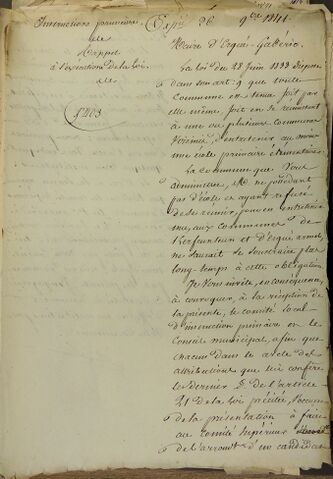 Instruction primaire
de
Rappel
à l'exécution de la loi.
de
1203
Expié 26 9bre 1841
Maire d'Ergué-Gabéric.
La loi du 28 Juin 1833 dispose
dans son art: 9 que toute
Commune est tenue soit par
elle même, soit en se réunissant
à une ou plusieurs communes
voisines, d'entretenir au moins
une école primaire élémentaire.
La commune que vous
administrez, ne possédant
pas d'école et ayant refusé
de se réunir, pour en entretenir
une, aux communes de
Kerfeunteun et d'Ergué armel,
ne saurait se soustraire plus
long-temps à cette obligation.
Je vous invite, en conséquence,
à convoquer, à la réception de
la présente, le comité local
d'instruction primaire et le
Conseil municipal, afin que
chacun dans le cercle des
attributions que lui confère
le dernier § de l'article
21 de la loi précitée, s'occupe
de la présentation à faire
au Comité Supérieur
de l'arrondt d'un candidat